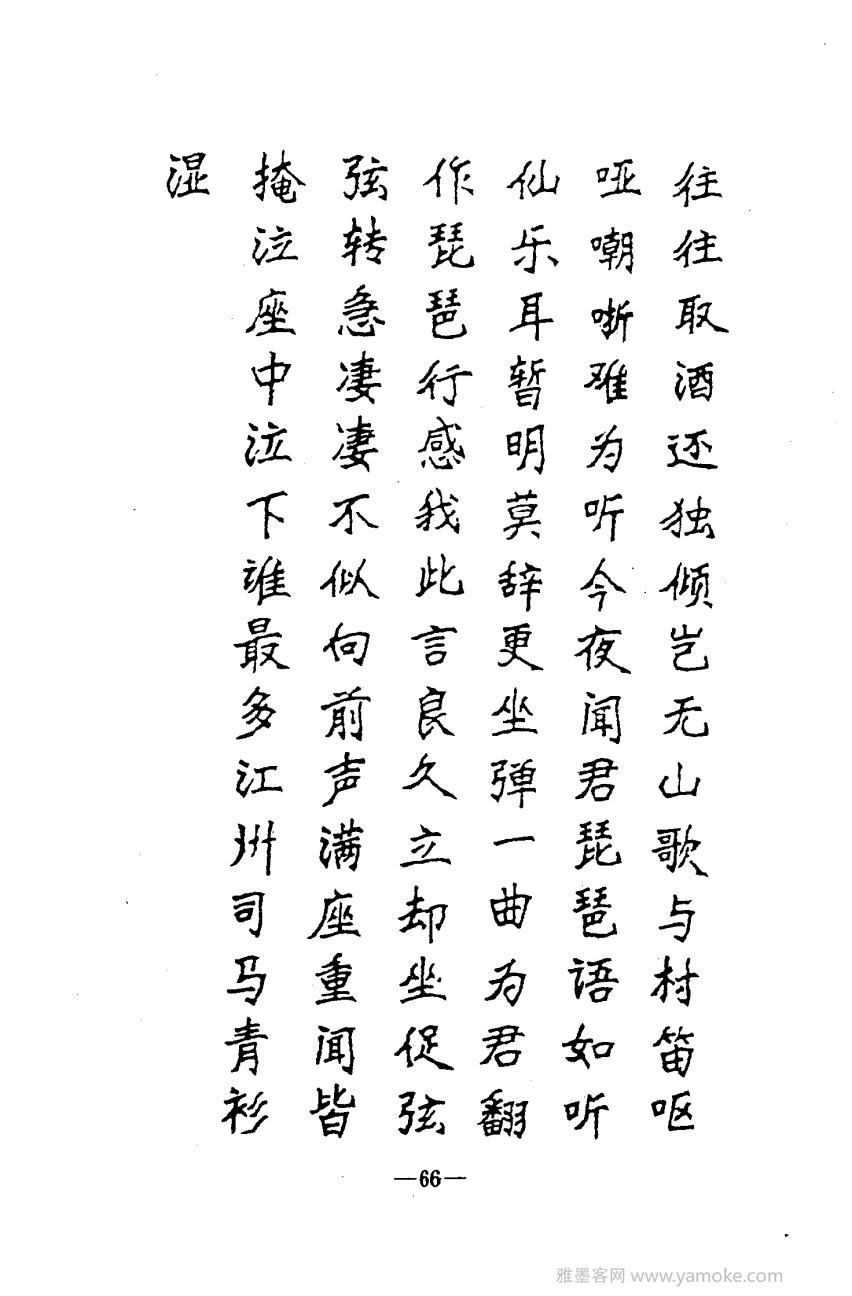 往往取酒还独倾岂无山歌与村笛呕
哑嘲哳难为听今夜闻君琵琶语如听
仙乐耳暂明莫辞更坐弹一曲为君翻
作琵琶行感我此言良久立却坐促弦
弦转急凄凄不似向前声满座重闻皆
掩泣座中泣下谁最多江州司马青衫
湿
—66—
雅墨客网 www.yamoke.com